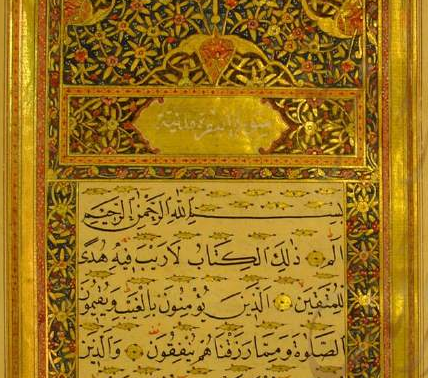 سورة البقرة مدنية
بِسْمِ اللهِ الرَّحْمٰنِ الرَّحِيمِ
الم ذٰلِكَ الْكِتَابُ لَا رَيْبَ فِيهِ هُدًى
لِلْمُتَّقِينَ الَّذِينَ يُؤْمِنُونَ بِالْغَيْبِ وَيُقِيمُونَ
الصَّلٰوةَ وَمِمَّا رَزَقْنَاهُمْ يُنْفِقُونَ وَالَّذِينَ